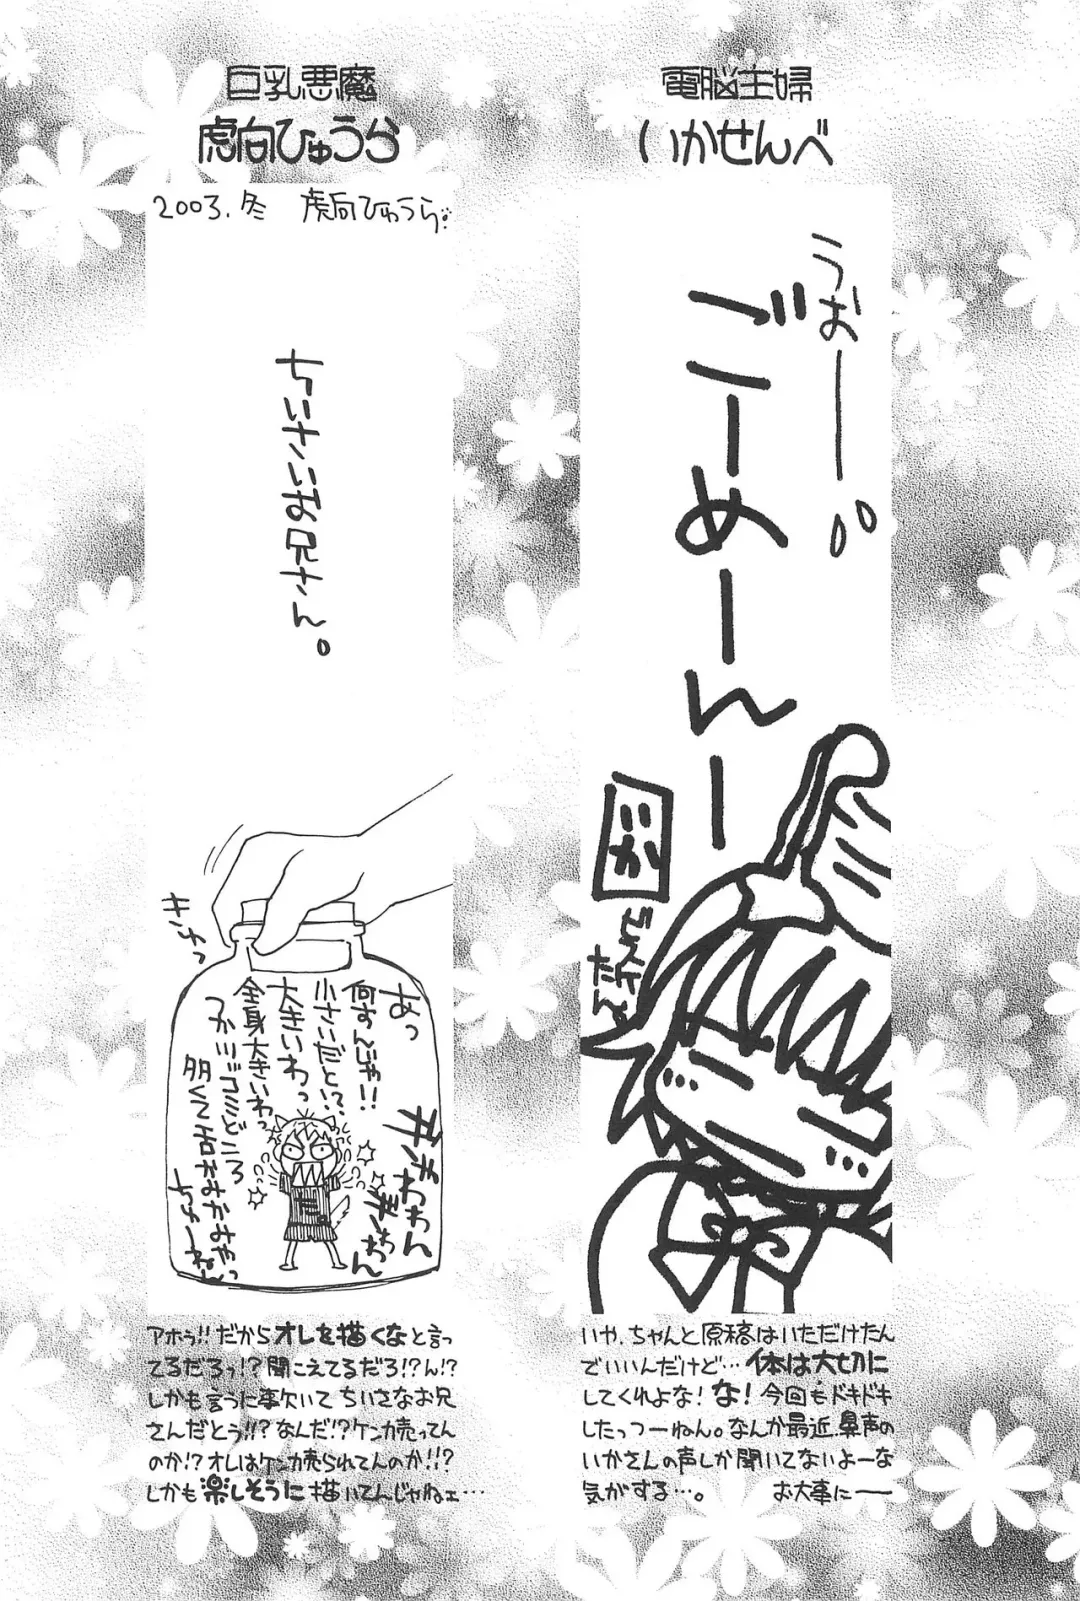 電脳主婦
いかせんべ
うおーー。
ごーめーんー
巨乳悪魔
虎向ひゅうら
2003.冬 虎向ひゅうら
ちいさいお兄さん。
きゅっ
あっ
何すんじゃ!!
小さいだと!?
大きいわっ
全身大きいわっ
つかツッコミどころ
多くて
いや、ちゃんと原稿はいただけたん
でいいんだけど…体は大切に
してくれよな!な!今回もドキドキ
したっつーねん。なんか最近、鼻声の
いかさんの声しか聞いてないよーな
気がする…。 お大事にー
アホゥ!!だからオレを描くなと言っ
てるだろっ!?聞こえてるだろ!?ん!?
しかも言うに事欠いて ちいさなお兄
さんだとぅ!!?なんだ!?ケンカ売ってん
のか!?オレはケンカ売られてんのか!!?
しかも楽しそうに描いてんじゃねェ…